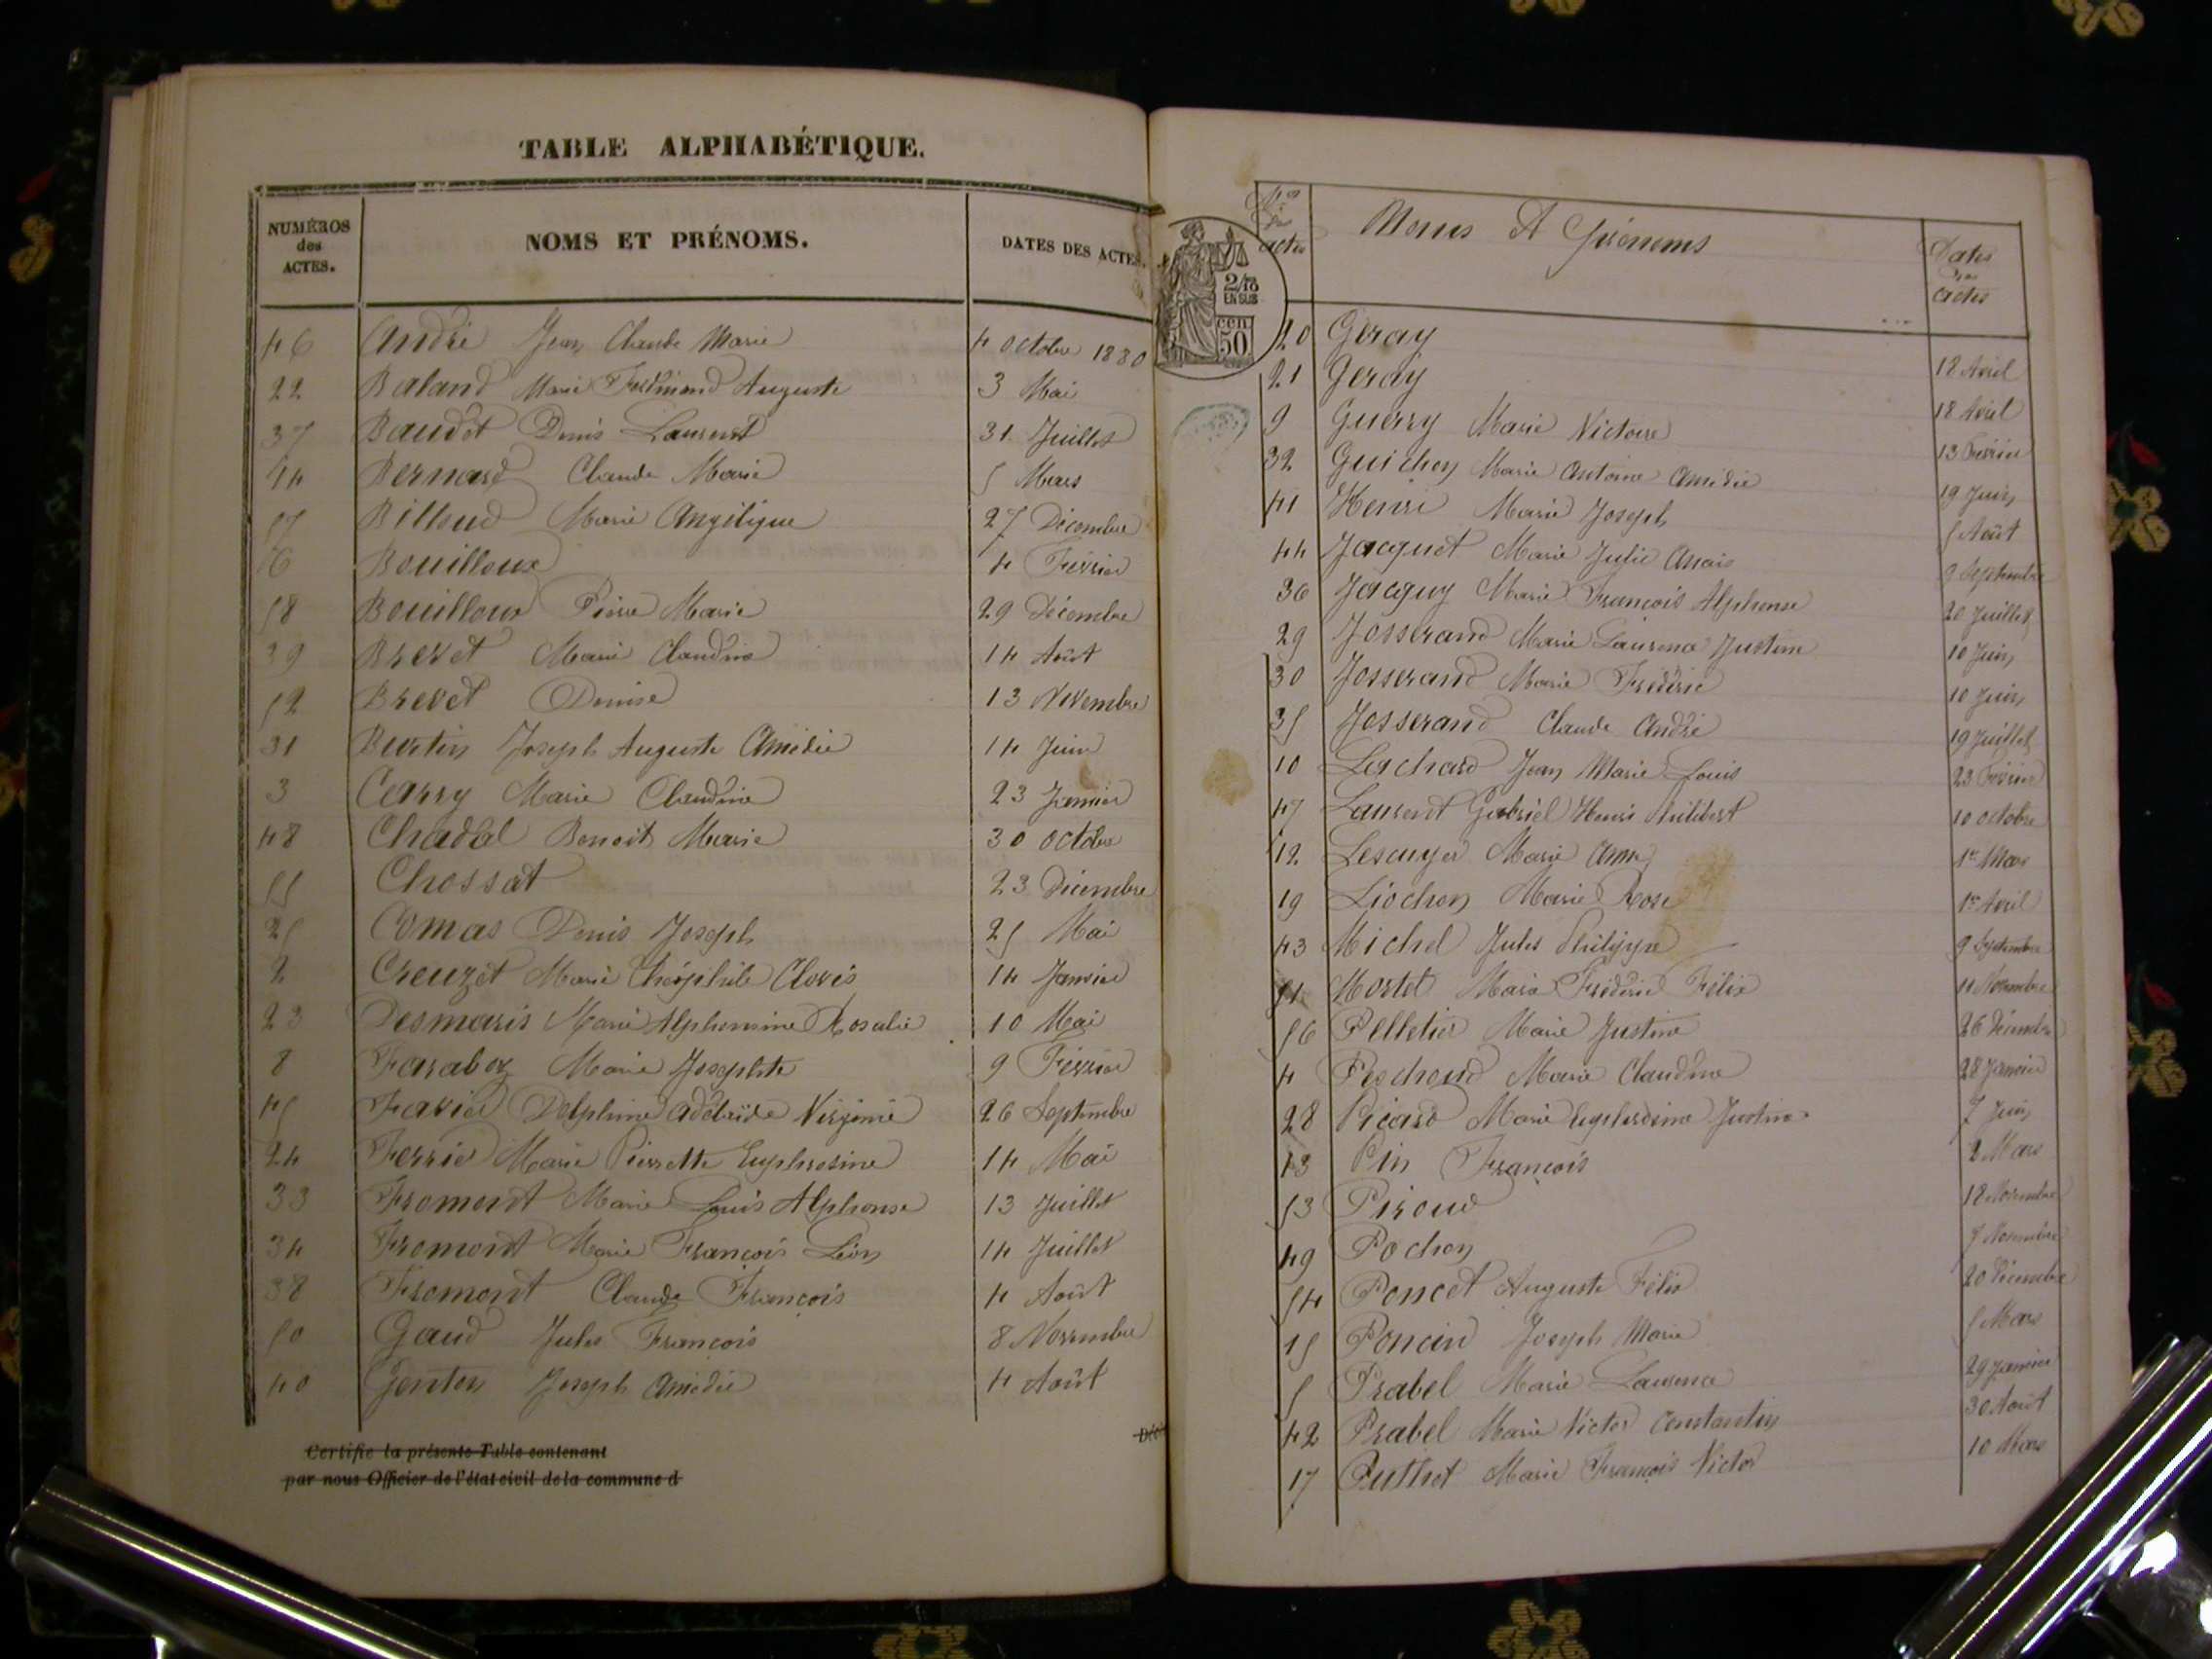 TABLE ALPHABÉTIQUE.
NUMÉROS des ACTES. NOMS ET PRÉNOMS. DATES DES ACTES.
46 André Jean Claude Marie 4 Octobre 1880
22 Baland Marie Ferdinand Auguste 3 Mai
37 Baudet Denis Laurent 31 Juillet
14 Bernard Claude Marie 5 Mars
57 Billoud Marie Angélique 27 Décembre
6 Bouilloux 4 Février
58 Bouilloux Pierre Marie 29 Décembre
39 Brevet Marie Claudine 14 Août
52 Brevet Denise 13 Novembre
31 Burtin Joseph Auguste Amédée 14 Juin
3 Carry Marie Claudine 23 Janvier
48 Chadal Benoit Marie 30 octobre
55 Chossat 23 Décembre
25 Comas Denis Joseph 25 Mai
2 Creuzet Marie Théophile Clovis 14 Janvier
23 Desmaris Marie Alphonsine Rosalie 10 Mai
8 Faraboz Marie Josephte 9 Février
45 Favier Delphine adélaïde Virginie 26 Septembre
24 Ferrier Marie Pierrette Euphrosine 14 Mai
33 Fromont Marie Louis Alphonse 13 Juillet
34 Fromont Marie François Léon 14 Juillet
38 Fromont Claude François 4 Août
50 Gaud Jules François 8 Novembre
40 Genton Joseph Amédée 4 Août
Certifie la présente Table contenant
par nous Officier de l'état civil de la commune d
Nos des actes Noms Et Prénoms Dates des actes
2/10 EN SUS
50 cen
20 Geray 18 Avril
21 Geray 18 Avril
9 Guerry Marie Victoire 13 Février
32 Guichon Marie Antoine Amédée 19 Juin
41 Henri Marie Joseph 5 Août
44 Jacquet Marie Julie Anais 9 Septembre
36 Jacquy Marie François Alphonse 20 Juillet
29 Josserand Marie Laurence Justine 10 Juin
30 Josserand Marie Frédéric 10 Juin
35 Josserand Claude André 19 Juillet
10 Lachard Jean Marie Louis 23 Février
47 Laurent Gabriel Henri Philibert 10 octobre
12 Lescuyer Marie Anne 1er Mars
19 Liochon Marie Rose 1er Avril
43 Michel Jules Philippe 9 Septembre
51 Mortet Marie Frédéric Félix 11 Novembre
56 Pelletier Marie Justine 26 Décembre
4 Peschoud Marie Claudine 28 Janvier
28 Picard Marie Justine 7 Juin
13 Pin François 2 Mars
53 Piroux 18 Novembre
49 Pochon 7 Novembre
54 Poncet Auguste Félix 20 Décembre
15 Poncin Joseph Marie 5 Mars
5 Prabel Marie Laurence 29 Janvier
42 Prabel Marie Victor Constantin 30 Août
17 Puthet Marie François Victor 10 Mars